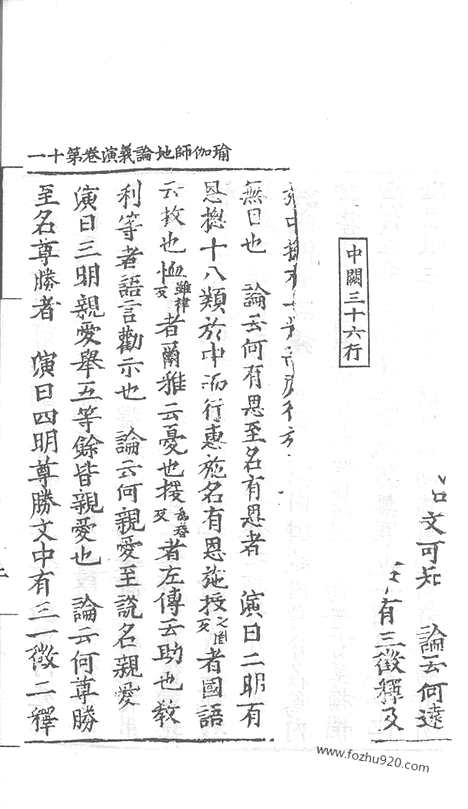 文可知 論云何違
有三徵釋及
中闕三十六行
無日也 論云何有恩至名有恩者 演曰二明有
恩摠十八類於中而行惠施名有恩施授之国反者國語
云救也恤雖律反者爾雅云憂也援為眷反者左傳云助也教
利等者語言勸示也 論云何親愛至說名親愛
演曰三明親愛舉五等餘皆親愛也 論云何尊勝
至名尊勝者 演曰四明尊勝文中有三一徵二釋
瑜伽師地論義演卷第十一
www.fozhu920.com